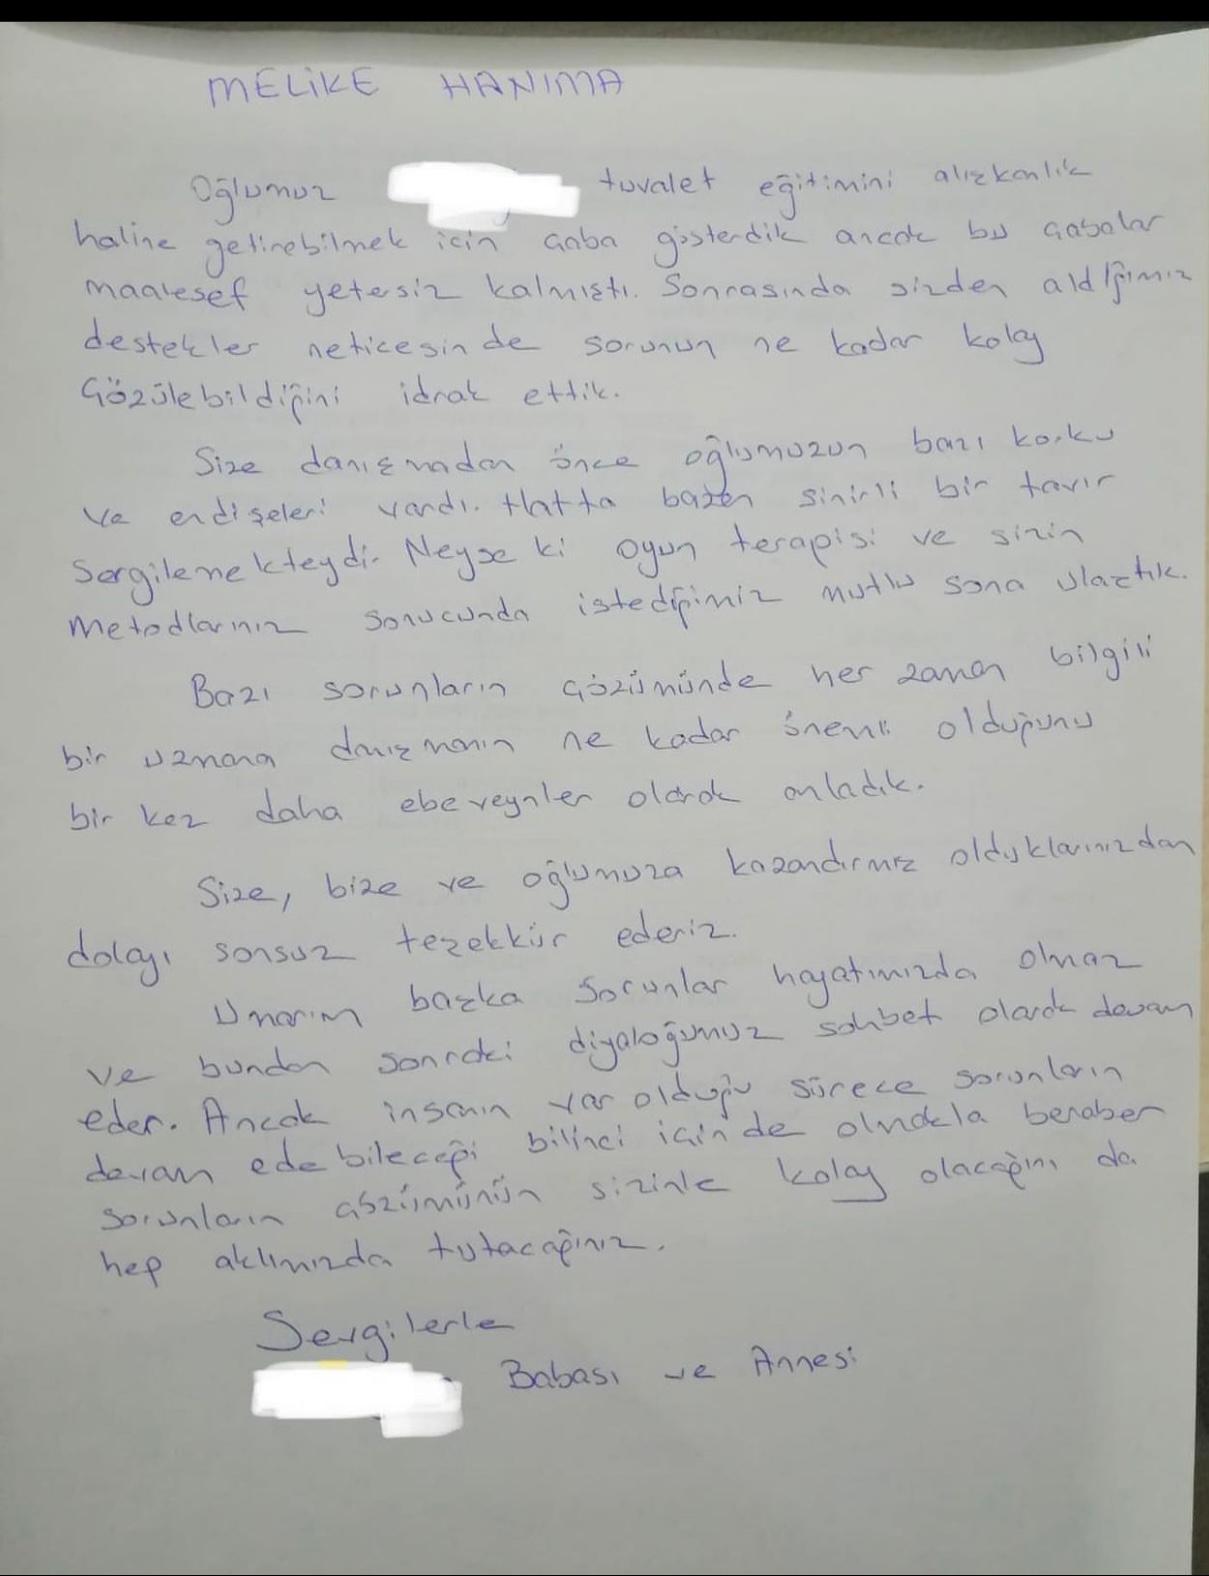 MELİKE HANIMA
Oğlumuz tuvalet eğitimini alışkanlık
haline getirebilmek için çaba gösterdik ancak bu çabalar
maalesef yetesiz kalmıştı. Sonrasında sizden aldığımız
destekler neticesinde sorunun ne kadar kolay
çözülebildiğini idrak ettik.
Size danışmadan önce oğlumuzun bazı korku
ve endişeleri vardı. Hatta bazen sinirli bir tavır
sergilemekteydi. Neyse ki oyun terapisi ve sizin
metodlarınız sonucunda istediğimiz mutlu sona ulaştık.
Bazı sorunların çözümünde her zaman bilgili
bir uzmana danışmanın ne kadar önemli olduğunu
bir kez daha ebeveynler olarak anladık.
Size, bize ve oğlumuza kazandırmış olduklarınızdan
dolayı sonsuz teşekkür ederiz.
Umarım başka sorunlar hayatımızda olmaz
ve bundan sonraki diyaloğumuz sohbet olarak devam
eder. Ancak insanın var olduğu sürece sorunların
devam edebileceği bilinci içinde olmakla beraber
sorunların çözümünün sizinle kolay olacağını da
hep aklımızda tutacağınız.
Sevgilerle
Babası ve Annesi